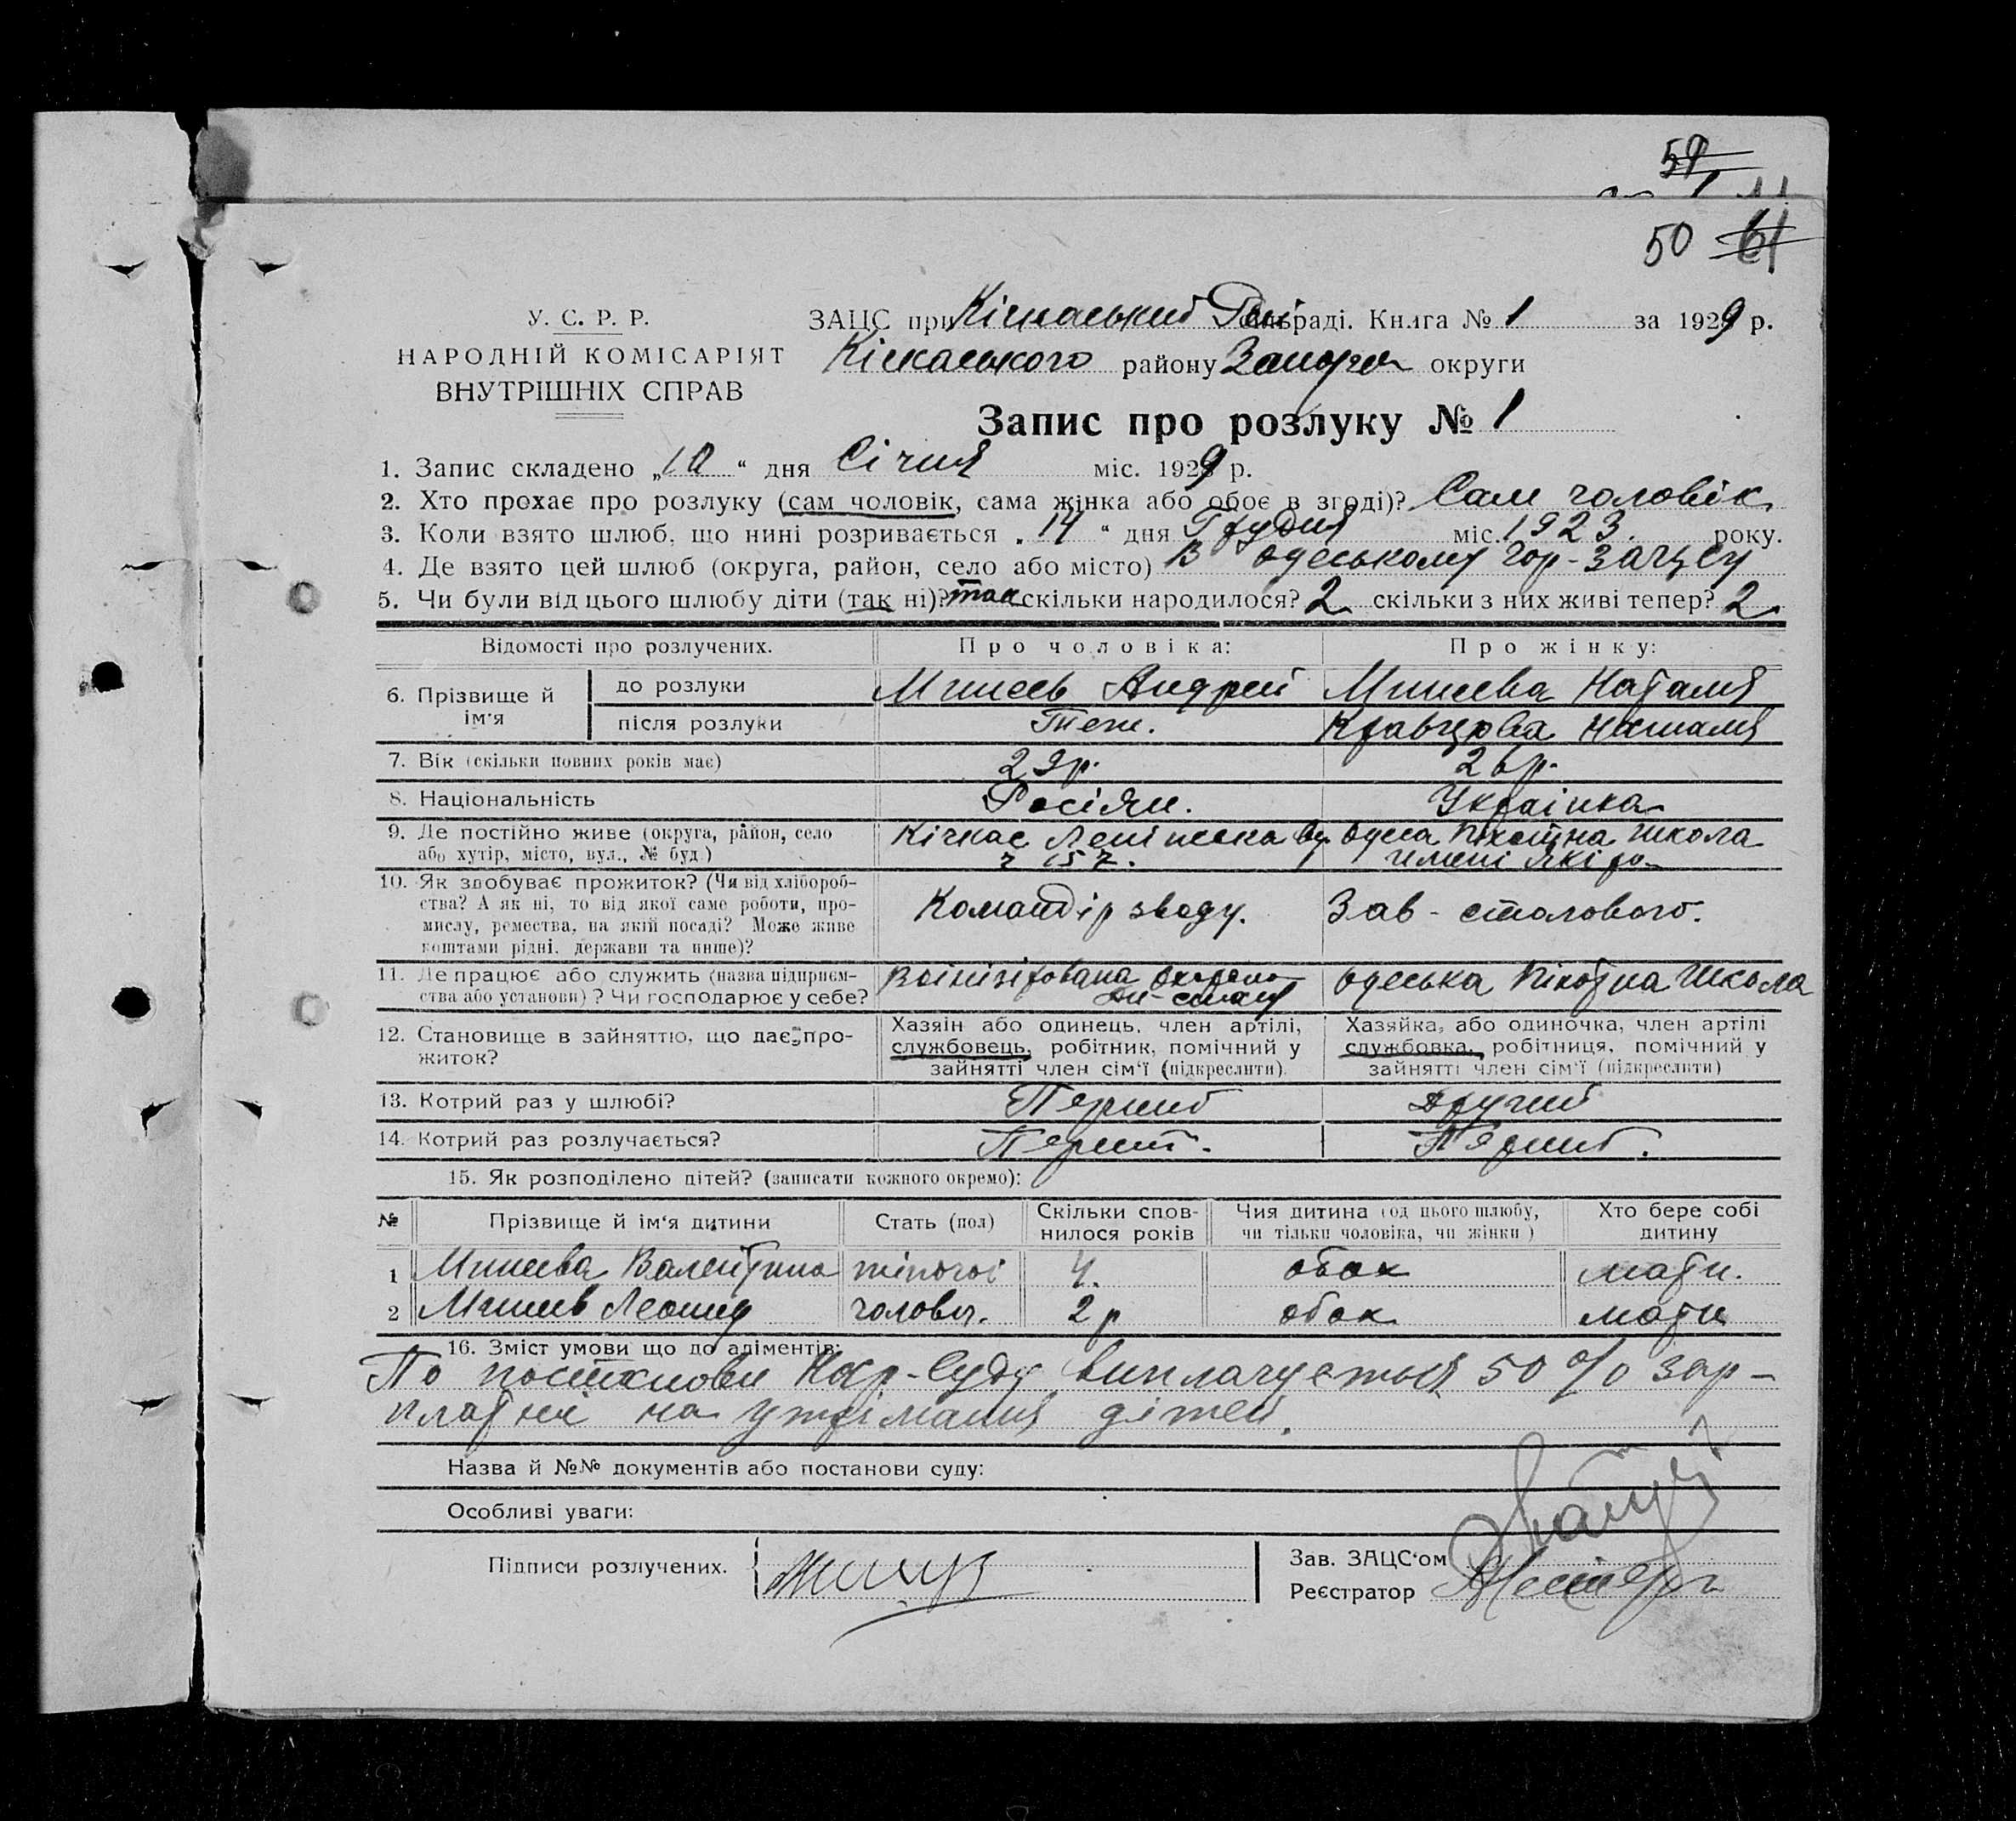 59
50 61
У. С. Р. Р.
НАРОДНІЙ КОМІСАРІЯТ
ВНУТРІШНІХ СПРАВ
ЗАЦС при Кічкаський сільраді. Книга № 1 за 1929 р.
Кічкаського району Запоріз округи
Запис про розлуку № 1
1. Запис складено „10“ дня Січня міс. 1929 р.
2. Хто прохає про розлуку (сам чоловік, сама жінка або обоє в згоді)? Сам чоловік
3. Коли взято шлюб, що нині розривається „14“ дня Грудня міс. 1923. року.
4. Де взято цей шлюб (округа, район, село або місто) в одеському гор-загсу
5. Чи були від цього шлюбу діти (так ні)? так скільки народилося? 2 скільки з них живі тепер? 2.
Відомості про розлучених. Про чоловіка: Про жінку:
6. Прізвище й ім'я до розлуки Минеев Андрей Минеева Наталія
після розлуки Теж. Кравцова Наталія
7. Вік (скільки повних років має) 29р. 26р.
8. Національність Росіян. Українка
9. Де постійно живе (округа, район, село Кічкас Одеса Піхотна школа
або хутір, місто, вул., № буд.) 157. імені Якіра
10. Як здобуває прожиток? (Чи від хлібороб-
ства? А як ні, то від якої саме роботи, про-
мислу, ремества, на якій посаді? Може живе
коштами рідні, держави та инше)? Командір зводу. Зав - столового.
11. Де працює або служить (назва підприєм- Одеська Піхотна Школа
ства або установи)? Чи господарює у себе?
12. Становище в зайняттю, що дає про-
житок?
Хазяїн або одинець, член артілі,
службовець, робітник, помічний у
зайнятті член сім'ї (підкреслити).
Хазяйка, або одиночка, член артілі
службовка, робітниця, помічний у
зайнятті член сім'ї (підкреслити)
13. Котрий раз у шлюбі? Перший Другий
14. Котрий раз розлучається? Перший. Перший.
15. Як розподілено дітей? (записати кожного окремо):
№ Прізвище й ім'я дитини Стать (пол) Скільки спов-
нилося років Чия дитина (од цього шлюбу,
чи тільки чоловіка, чи жінки) Хто бере собі
дитину
1 Минеева Валентина 4. обох мати.
2 Минеев Леонид чоловіч. 2р обох мати
16. Зміст умови що до аліментів:
По постанови Нар-Суду виплачується 50% зар-
платні на утрімання дітей.
Назва й №№ документів або постанови суду:
Особливі уваги:
Підписи розлучених.
Зав. ЗАЦС'ом
Реєстратор